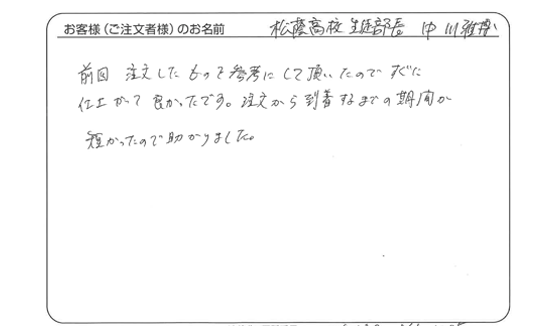 お客様（ご注文者様）のお名前 松蔭高校 生徒部長 中川雅博
前回 注文したものを参考にして頂いたので すぐに
仕上がって良かったです。注文から到着するまでの期間が
短かったので助かりました。